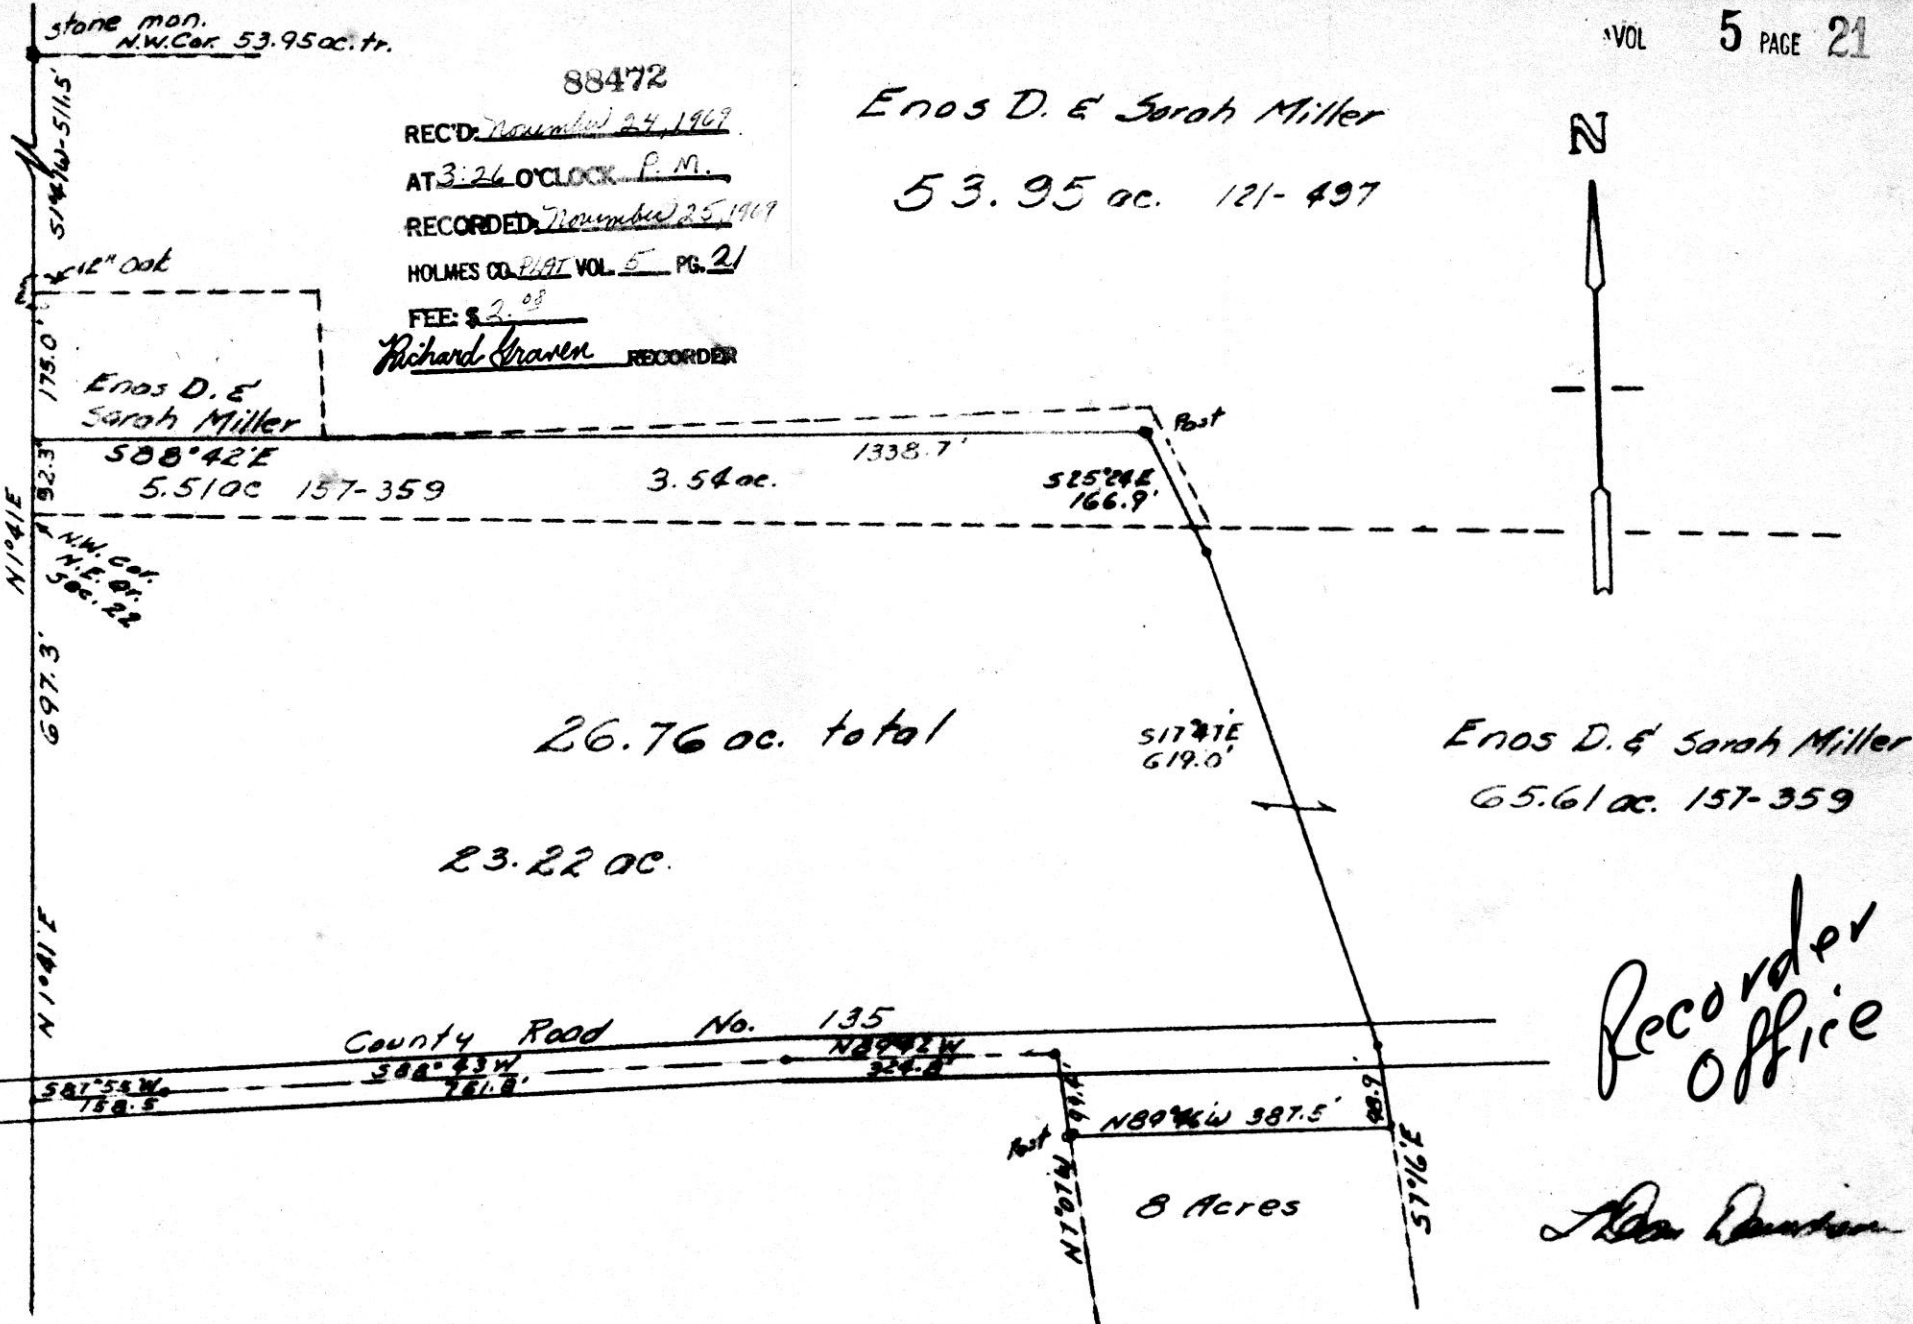 stone mon.
N.W. Cor. 53.95 ac. tr.
VOL 5 PAGE 21
88472
REC'D. November 24, 1969
AT 3:26 O'CLOCK P. M.
RECORDED: November 25, 1969
HOLMES CO. PLAT VOL. 5 PG. 21
FEE: $ 2.00
Richard Graven RECORDER
Enos D. & Sarah Miller
53.95 ac. 121-497
N
511.5'
12" Oak
175.0'
Enos D. &
Sarah Miller
S88°42'E
5.51 ac 157-359
92.3'
1338.7'
3.54 ac.
Post
S25°24'E
166.9'
N1°41'E
N.W. Cor.
N.E. Qr.
Sec. 22
697.3'
26.76 ac. total
S17°47'E
619.0'
Enos D. & Sarah Miller
65.61 ac. 157-359
23.22 ac.
N1°41'E
County Road No. 135
S87°55'W
158.5
S88°43'W
761.8'
N89°42'W
324.8'
99.4'
98.9
Post
N89°46'W 387.5'
N7°07'W
S7°16'E
8 Acres
Recorder
Office